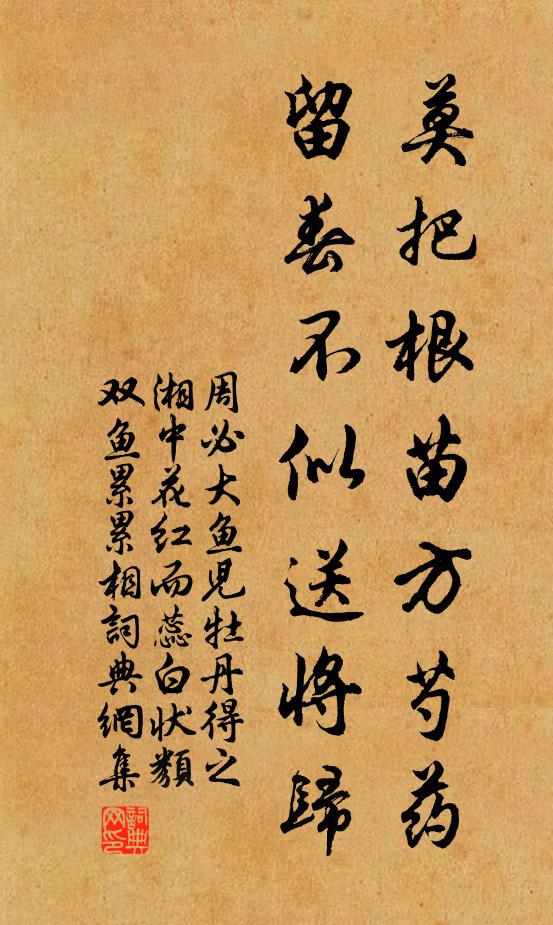 莫把根苗方芍药
留春不似送将歸
周必大鱼児牡丹得之
湘中花红而蕊白状類
双鱼累累相詞典網集
詞典网印